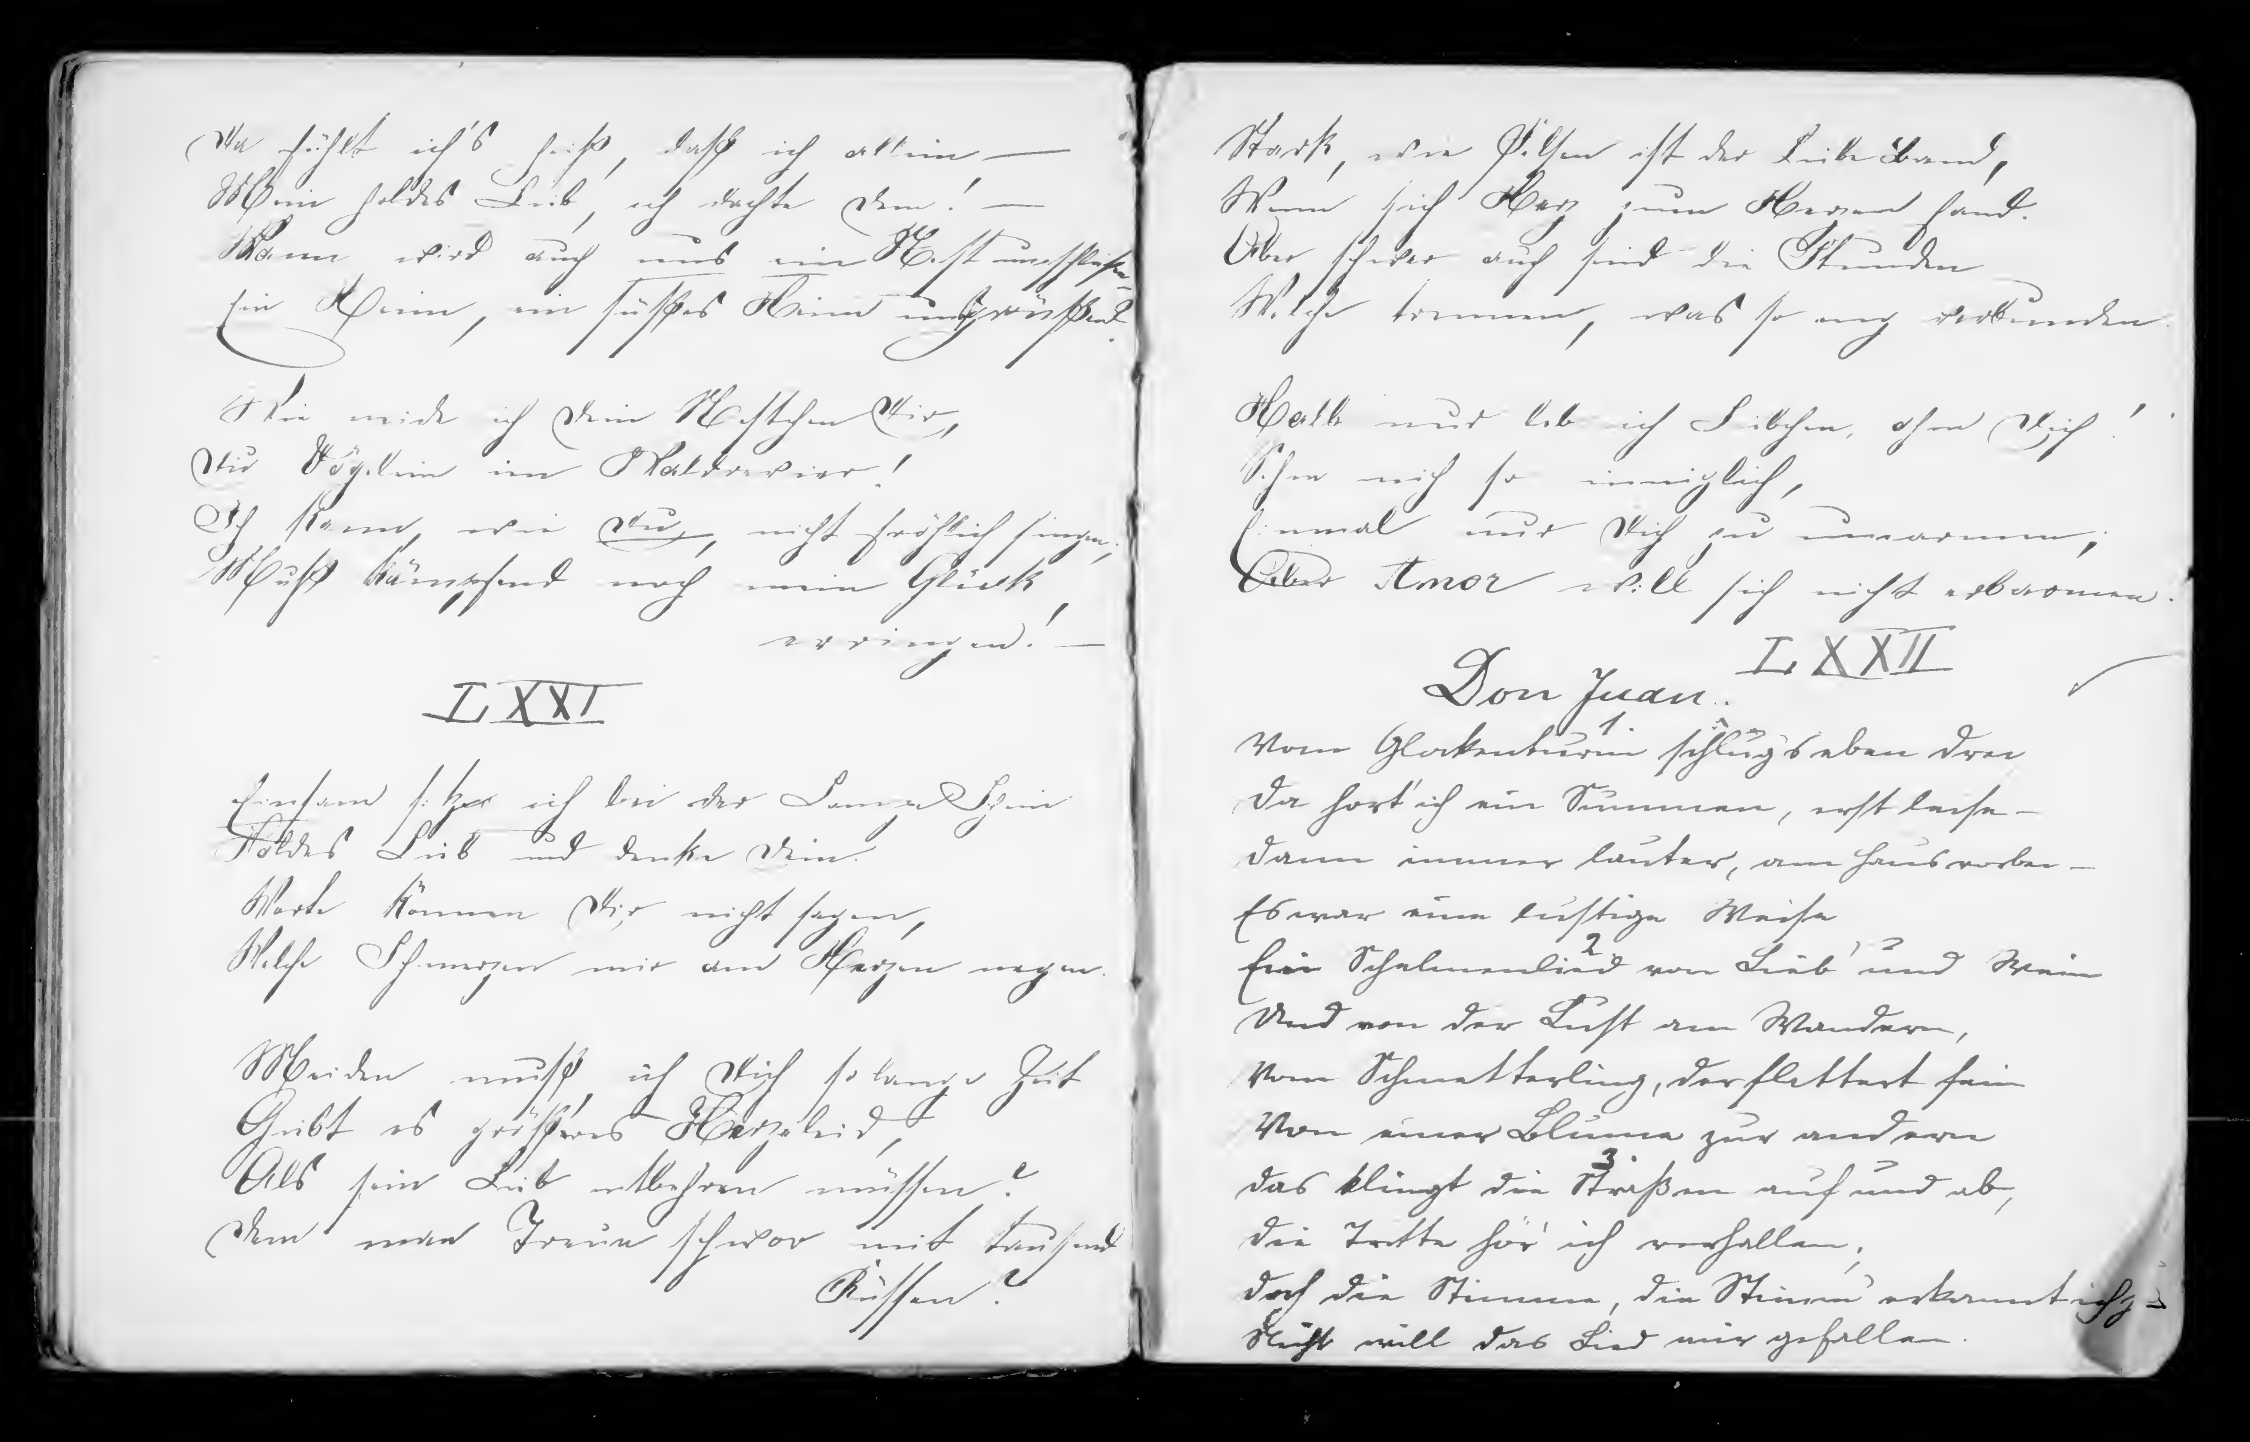 Da fühlt ich's heiß, daß ich allein, —
Mein holdes Lieb, ich dachte dein! —
Wann wird auch uns ein Nest umschließen,
Ein Heim, ein süßes Heim uns grüßen?
Wie neide ich Dein Nestchen Dir,
Du Vögelein im Waldrevier!
Ich kann, wie Du, nicht fröhlich singen,
Muß kämpfend noch mein Glück
erringen! —
LXXI
Einsam sitze ich bei der Lampe Schein
Holdes Lieb und denke Dein.
Worte können Dir nicht sagen,
Welche Schmerzen mir am Herzen nagen.
Meiden muß ich Dich so lange Zeit
Giebt es größeres Herzeleid,
Als sein Lieb entbehren müssen?
Dem man Treue schwor mit tausend
Küssen?
Stark, wie Felsen ist der Liebe Band,
Wenn sich Herz zum Herzen fand.
Aber schwer auch sind die Stunden
Welche trennen, was so eng verbunden.
Halb nur leb ich Liebchen, ohne Dich!
Sehne mich so inniglich,
Einmal nur Dich zu umarmen;
Aber Amor will sich nicht erbarmen.
LXXII
Don Juan.
1.
Vom Glockenturm schlug's eben drei
Da hört' ich ein Summen, erst leise –
Dann immer lauter, am Haus vorbei –
Es war eine lustige Weise
2.
Ein Schelmenlied von Lieb' und Wein
Und von der Lust am Wandern,
Vom Schmetterling, der flattert fein
Von einer Blume zur andern
3.
Das klingt die Straßen auf und ab,
Die Tritte hör' ich verhallen,
Doch die Stimme, die Stimm' erkannt ich
Nicht will das Lied mir gefallen.